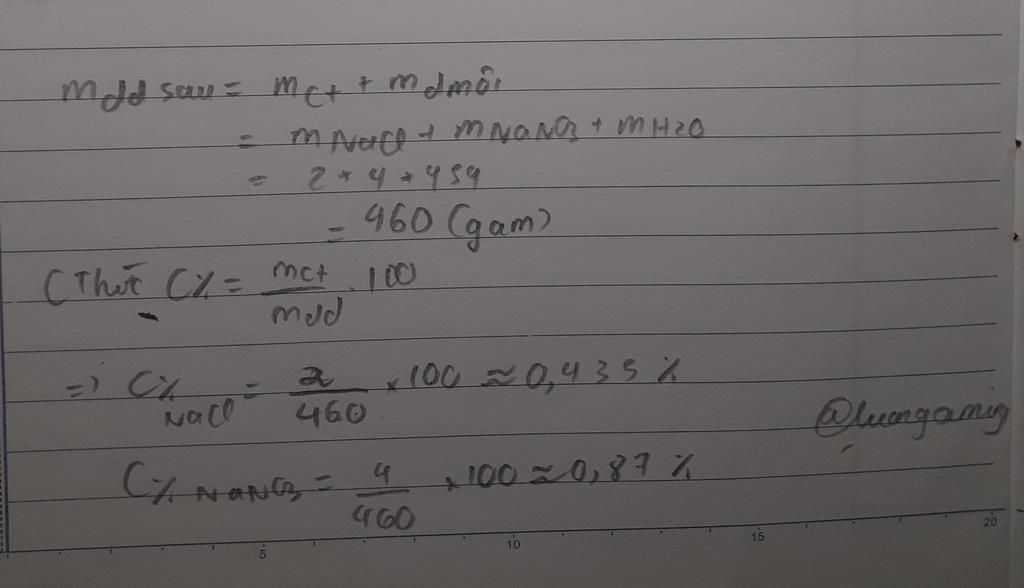 mdd sau = mct + mdmôi
= mNaCl + mNaNO3 + mH2O
= 2 + 4 + 454
= 460 (gam)
CThức C% = mct/mdd . 100
=> C% NaCl = 2/460 × 100 ≈ 0,435 %
@luongaming
C% NaNO3 = 4/460 × 100 ≈ 0,87 %
5 10 15 20